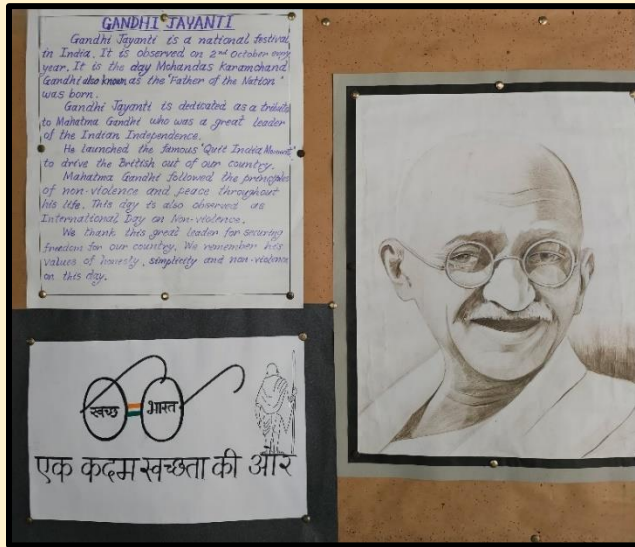 GANDHI JAYANTI
Gandhi Jayanti is a national festival
in India. It is observed on 2nd October every
year. It is the day Mohandas Karamchand
Gandhi also known as the 'Father of the Nation'
was born.
Gandhi Jayanti is dedicated as a tribute
to Mahatma Gandhi who was a great leader
of the Indian Independence.
He launched the famous 'Quit India Movement'
to drive the British out of our country.
Mahatma Gandhi followed the principles
of non-violence and peace throughout
his life. This day is also observed as
International Day on Non-violence.
We thank this great leader for securing
freedom for our country. We remember his
values of honesty, simplicity and non-violence
on this day.
स्वच्छ भारत
एक कदम स्वच्छता की ओर